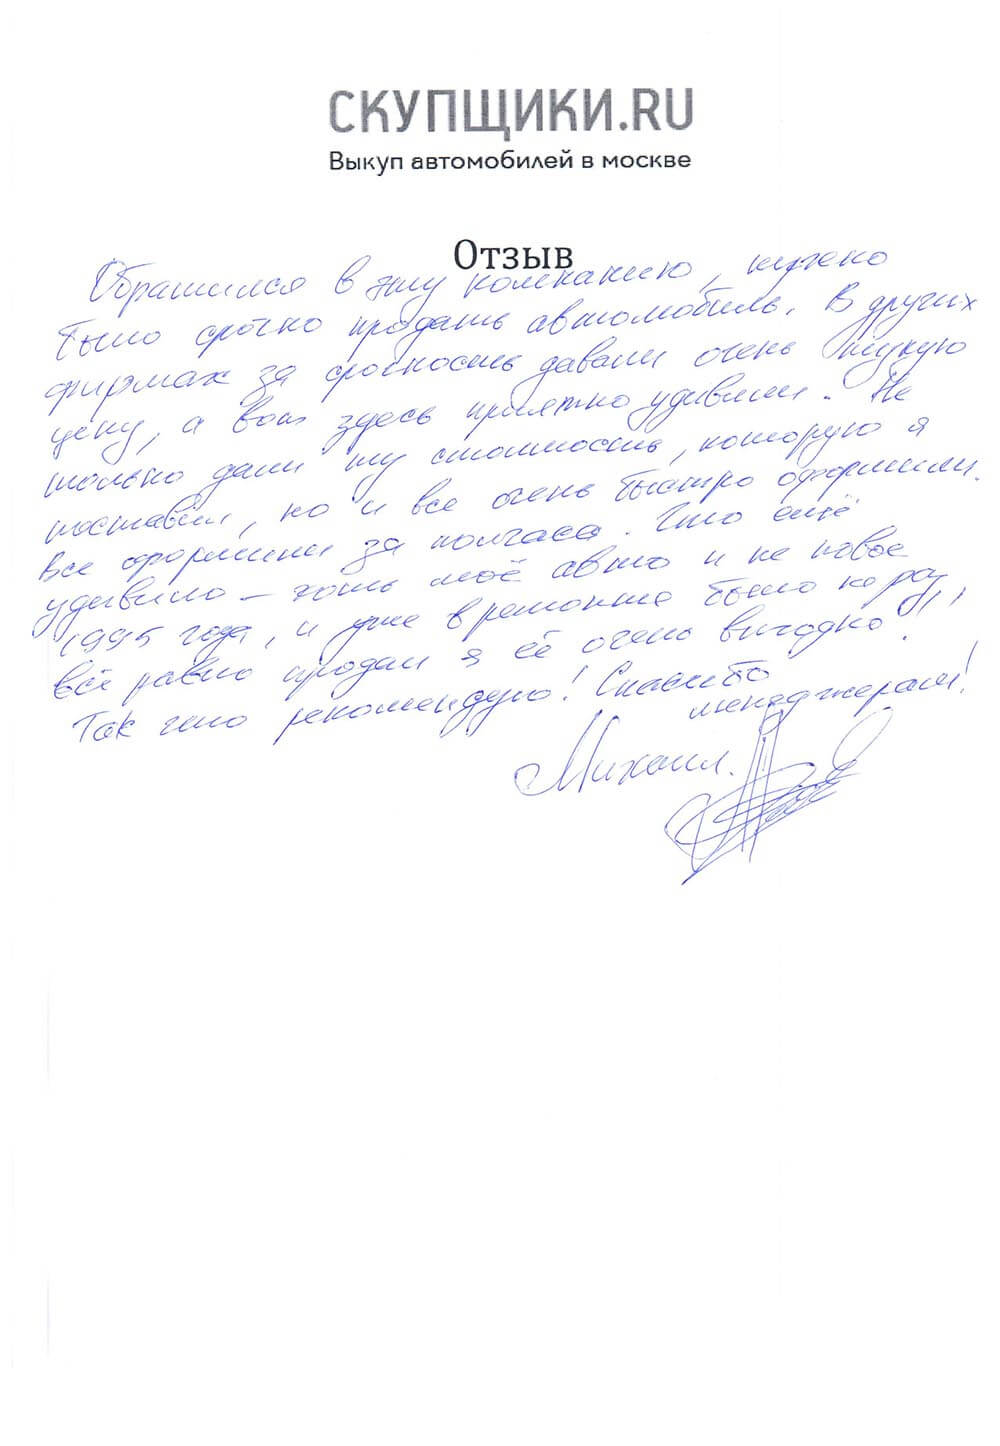 СКУПЩИКИ.RU
Выкуп автомобилей в москве
Отзыв
Обратился в эту компанию, нужно
было срочно продать автомобиль. В других
фирмах за срочность давали очень низкую
цену, а вот здесь приятно удивили. Не
только дали ту стоимость, которую я
поставил, но и все очень быстро оформили.
Все оформили за полчаса. Что ещё
удивило – хоть моё авто и не новое
1995 года, и уже в ремонте было не раз,
всё равно продал я её очень выгодно!
Так что рекомендую! Спасибо
менеджерам!
Михаил.